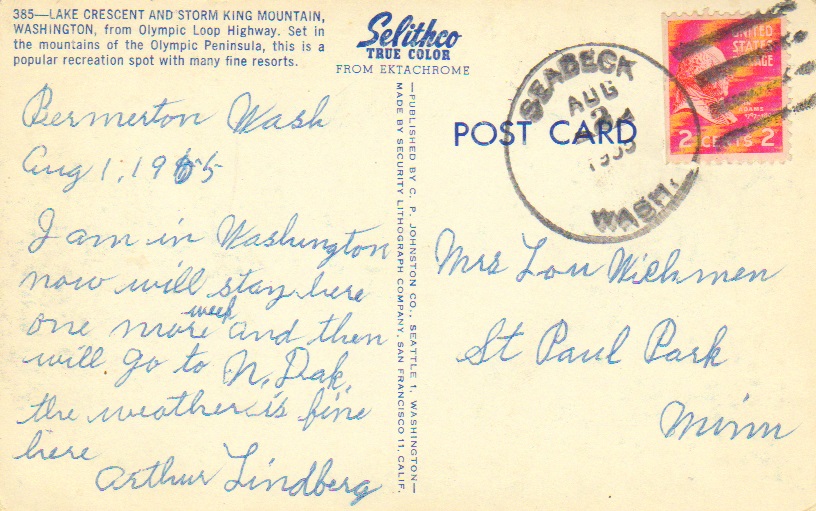 385—LAKE CRESCENT AND STORM KING MOUNTAIN,
WASHINGTON, from Olympic Loop Highway. Set in
the mountains of the Olympic Peninsula, this is a
popular recreation spot with many fine resorts.
Selithco
TRUE COLOR
FROM EKTACHROME
Bermerton Wash
Aug 1, 1955
I am in Washington
now will stay here
one more week and then
will go to N. Dak.
the weather is fine
here
Arthur Lindberg
—PUBLISHED BY C. P. JOHNSTON CO., SEATTLE 1, WASHINGTON—
MADE BY SECURITY LITHOGRAPH COMPANY, SAN FRANCISCO 11, CALIF.
POST CARD
SEABECK
AUG
2
1955
WASH.
UNITED
STATES
POSTAGE
ADAMS
2 CENTS 2
Mrs Lou Wichmen
St Paul Park
Minn